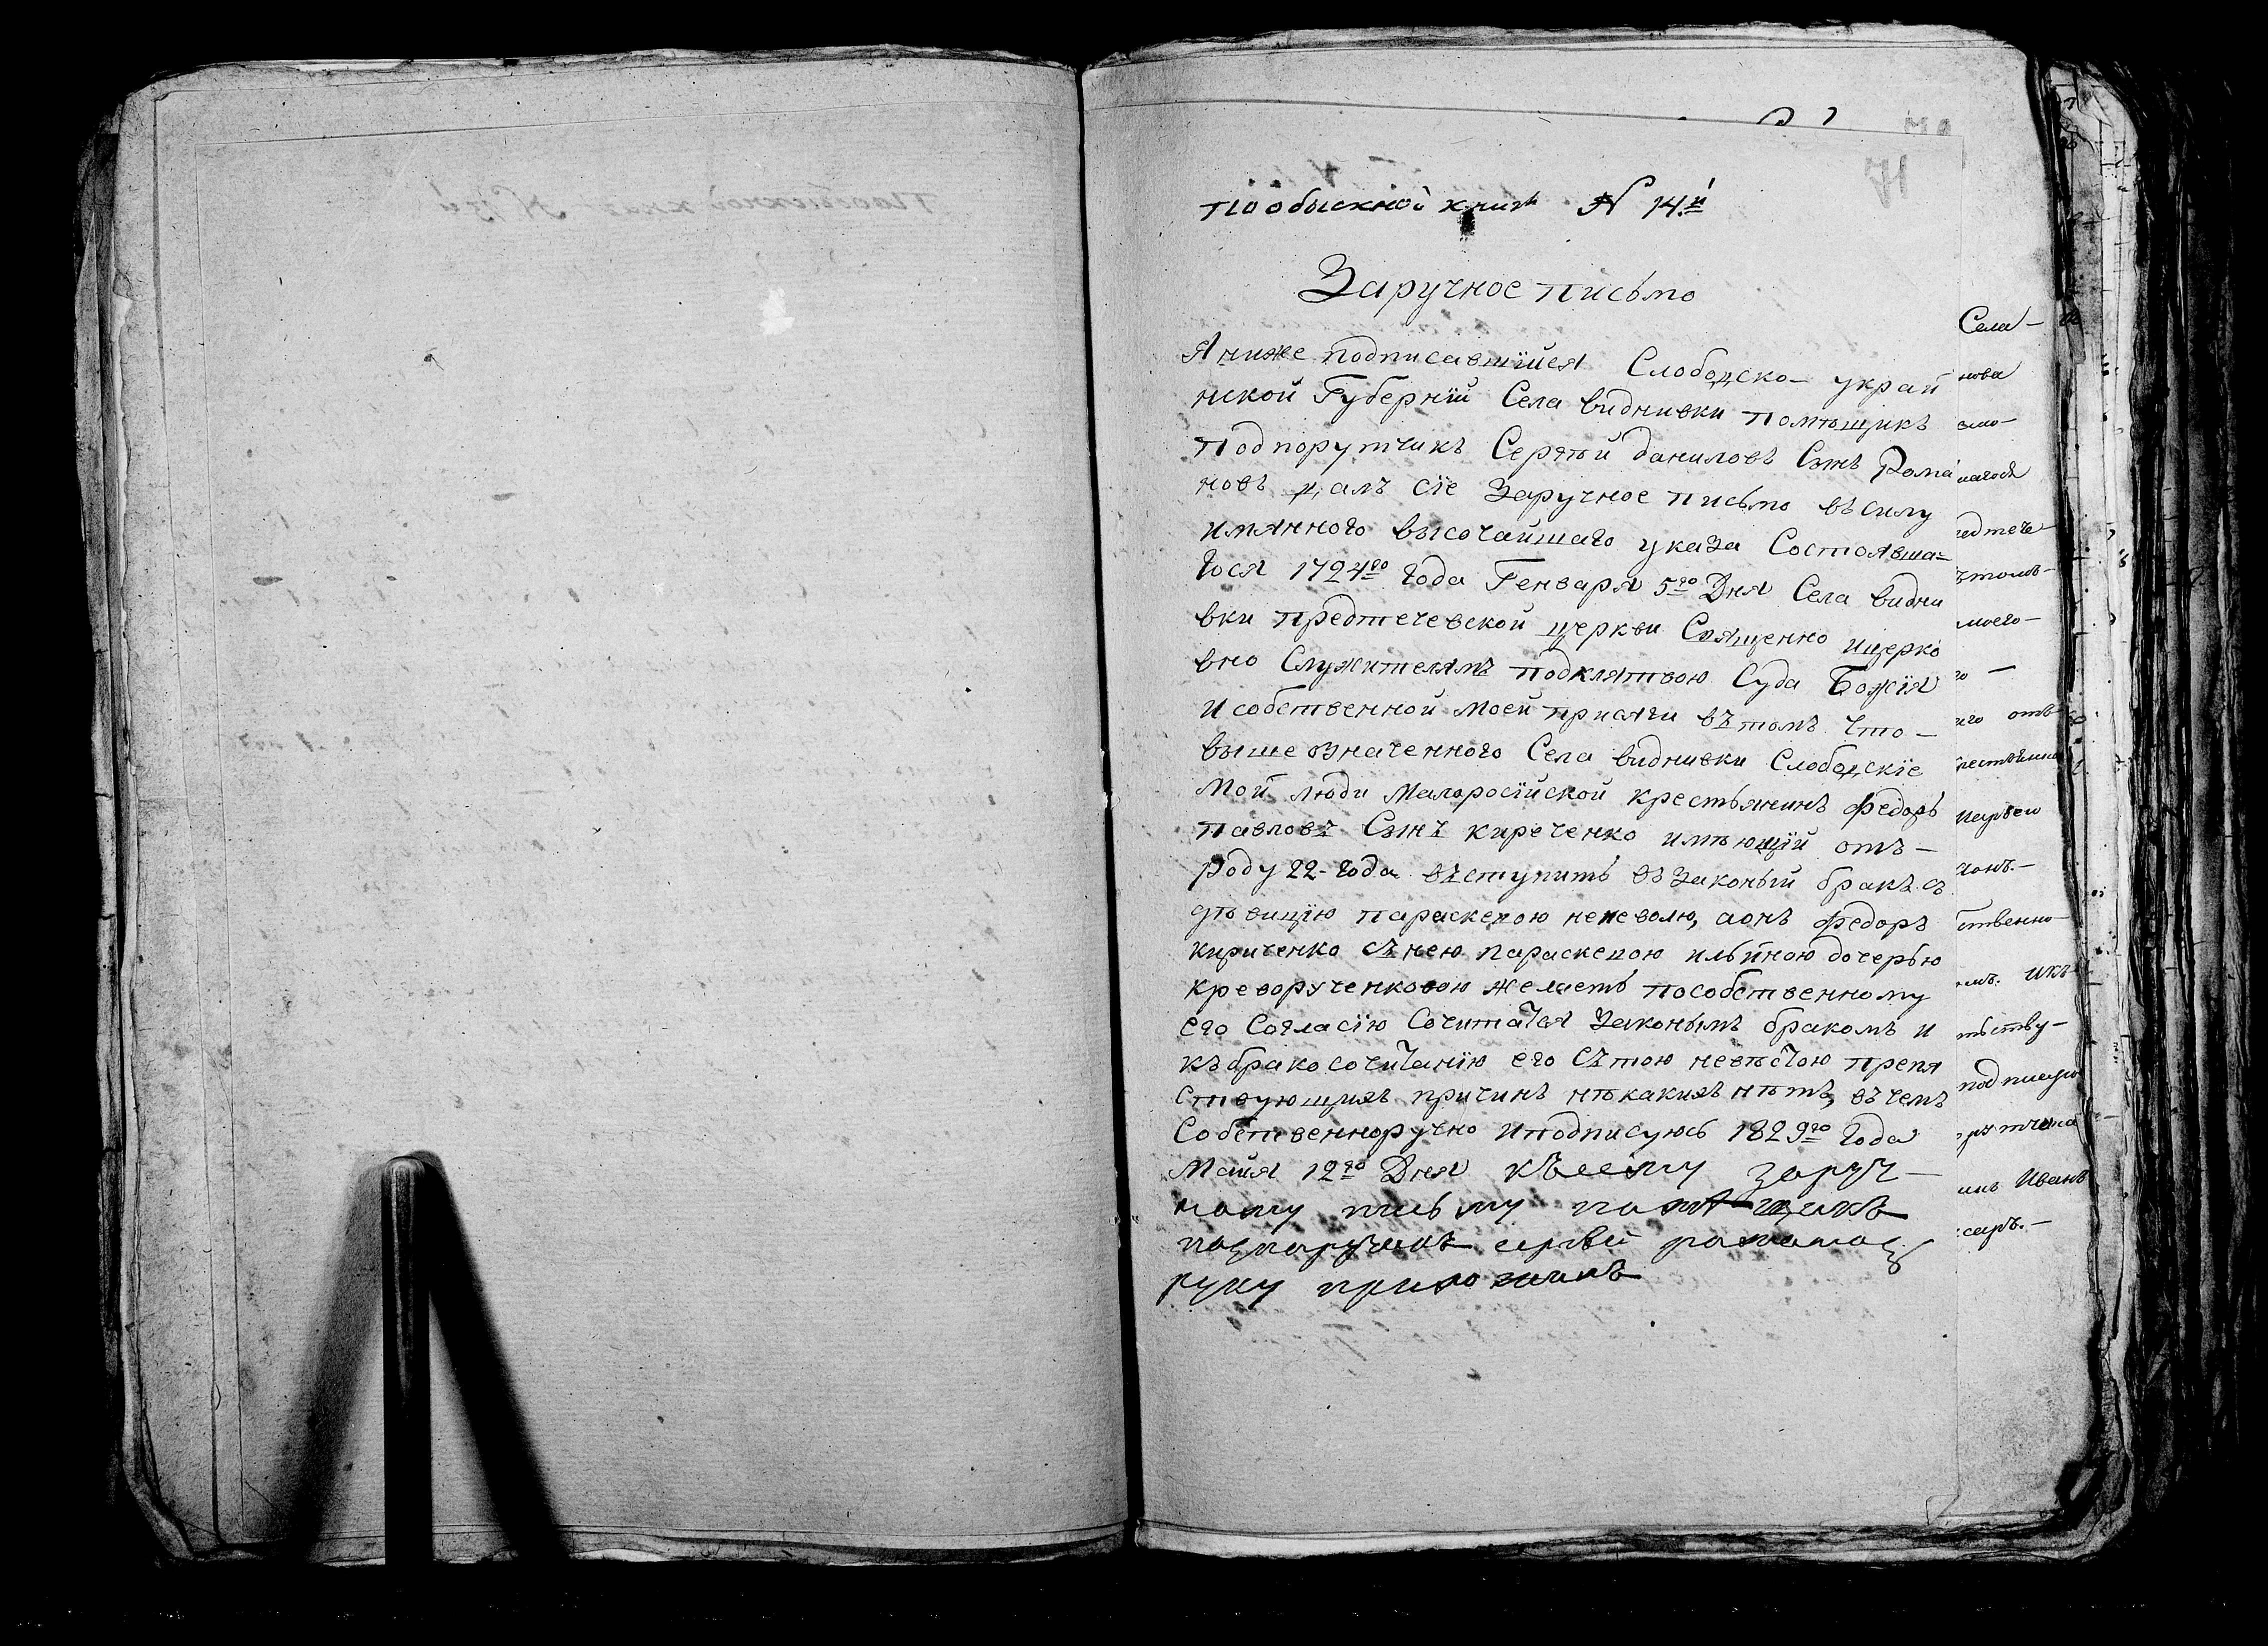 Пообыскной книгѣ N 14.й
Заручное письмо
Я ниже подписавшїйся Слободско- украй
нской Губернїи Села виднивки помѣщикъ
Подпорутчикъ Сергѣй даниловъ Сынъ Рома
новъ далъ сїе Заручное письмо въ силу
имянного высочайшаго указа Состоявша=
гося 1724го года Генваря 5го Дня Села видни
вки предтечевской церкви Священно ицерко
вно Служителямъ подклятвою Суда Божїя
и собственной моей присяги въ томъ что-
выше означенного Села виднивки Слободскїе
мой люди Малоросїйской крестьянинъ Федоръ
Павловъ Сынъ киреченко имѣющїй отъ-
Роду 22-года въступить въ законый бракъ съ
дѣвицїю параскевою неневолю, аонъ Федоръ
кириченко съ нею параскевою ильиною дочерью
креворученковою желаетъ пособственному
его Согласїю Сочитатся Законымъ бракомъ и
къ бракосочитанїю его съ тою невѣстою препя
ствующихъ причинъ нѣкакихъ нѣтъ, въ чемъ
Собственноручно иподписуюсь 1829го года
Майя 12го Дня къ сему заруч-
ному письму помѣщикъ
подпоручикъ сергѣй романов
руку приложилъ
Села-
нова
едтече-
моего-
го -
его отъ
ственно-
имъ. икъ
тьству-
подписую
инъ Иванъ